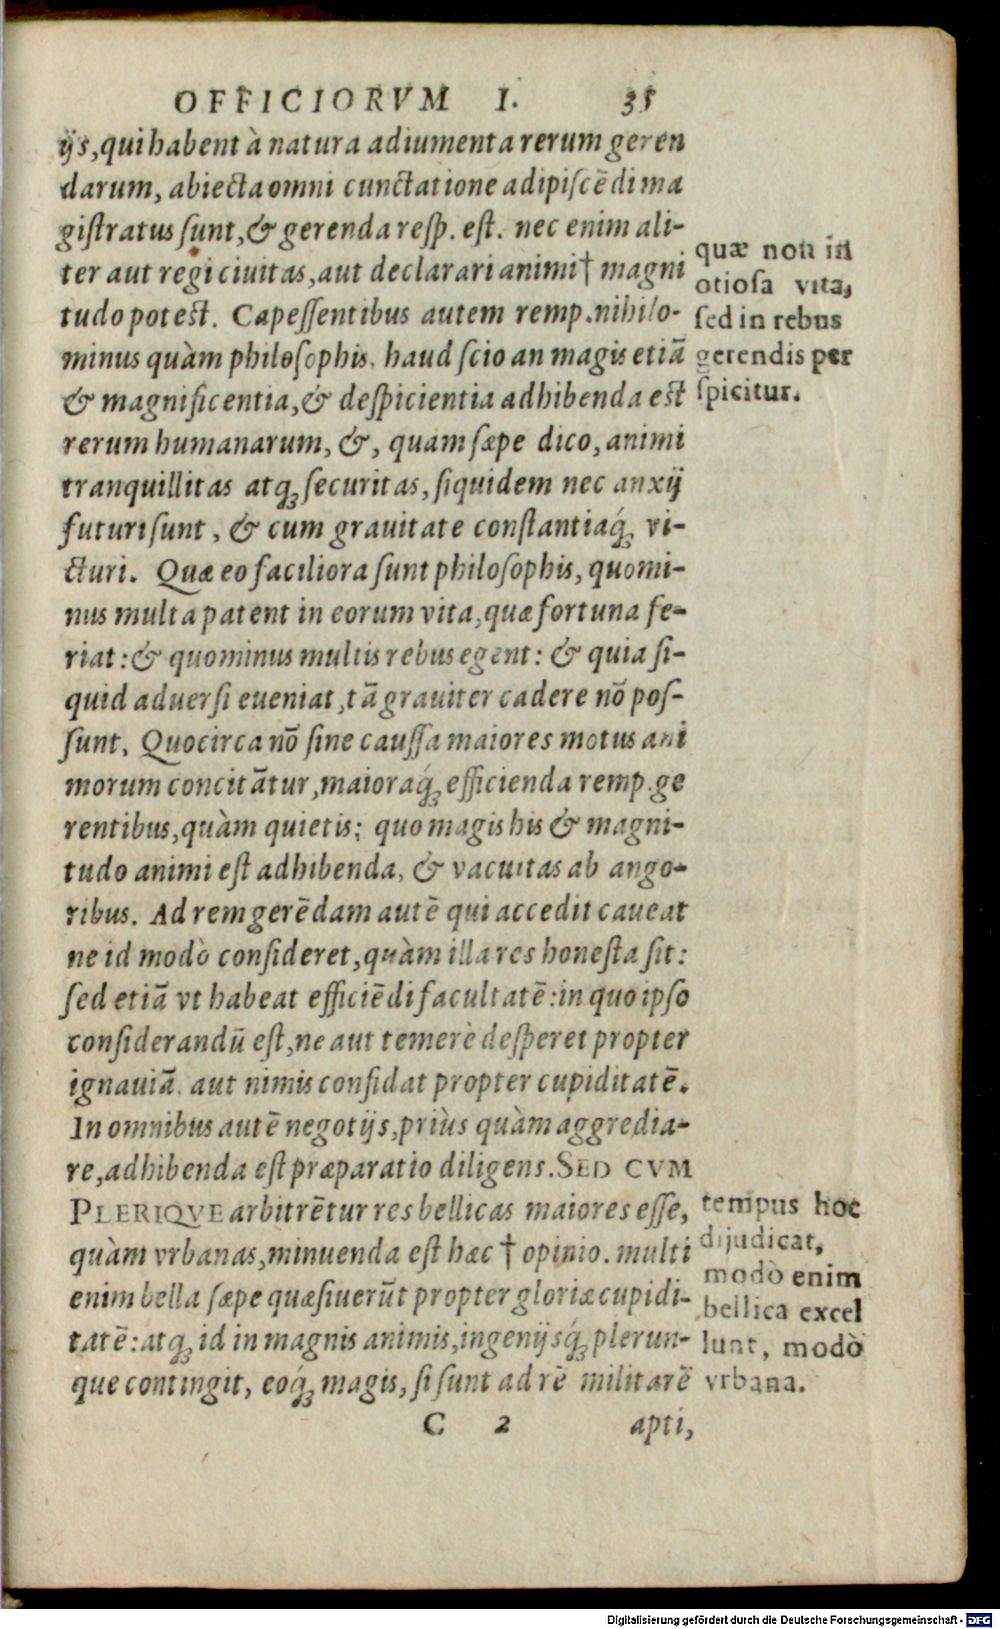 OFFICIORVM I. 35
ijs, qui habent à natura adiumenta rerum geren
darum, abiecta omni cunctatione adipiscēdi ma
gistratus sunt, & gerenda resp. est. nec enim ali-
ter aut regi ciuitas, aut declarari animi † magni
tudo potest. Capessentibus autem remp. nihilo-
minus quàm philosophis, haud scio an magis etiā
& magnificentia, & despicientia adhibenda est
rerum humanarum, &, quam sæpe dico, animi
tranquillitas atq; securitas, siquidem nec anxij
futuri sunt, & cum grauitate constantiaq́; vi-
cturi. Quæ eo faciliora sunt philosophis, quomi-
nus multa patent in eorum vita, quæ fortuna fe-
riat: & quominus multis rebus egent: & quia si-
quid aduersi eueniat, tā grauiter cadere nō pos-
sunt. Quocirca nō sine caussa maiores motus ani
morum concitātur, maioraq́; efficienda remp. ge
rentibus, quàm quietis: quo magis his & magni-
tudo animi est adhibenda, & vacuitas ab ango-
ribus. Ad rem gerēdam autē qui accedit caueat
ne id modò consideret, quàm illa res honesta sit:
sed etiā vt habeat efficiēdi facultatē: in quo ipso
considerandū est, ne aut temerè desperet propter
ignauiā. aut nimis confidat propter cupiditatē.
In omnibus autē negotijs, priùs quàm aggredia-
re, adhibenda est præparatio diligens. SED CVM
PLERIQVE arbitrētur res bellicas maiores esse,
quàm vrbanas, minuenda est hæc † opinio. multi
enim bella sæpe quæsiuerūt propter gloriæ cupidi-
tatē: atq; id in magnis animis, ingenijsq́; plerun-
que contingit, eoq́; magis, si sunt ad rē militarē
C 2 apti,
quæ non in
otiosa vita,
sed in rebus
gerendis per
spicitur.
tempus hoc
dijudicat,
modò enim
bellica excel
lunt, modò
vrbana.
Digitalisierung gefördert durch die Deutsche Forschungsgemeinschaft - DFG